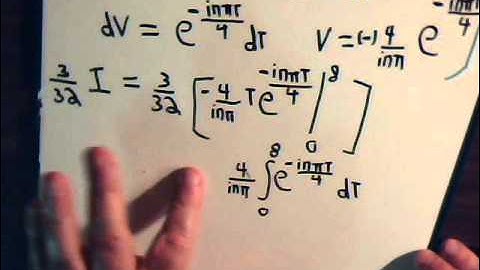 dV = e^{-inπT/4} dT    V = (-) 4/inπ e^{-inπT/4}
3/32 I = 3/32 [ -4/inπ T e^{-inπT/4} |_0^8 ]
4/inπ ∫_0^8 e^{-inπT/4} dT